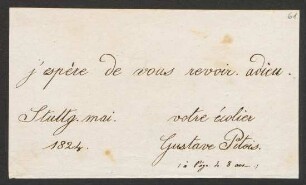 61
j'espère de vous revoir. adieu.
Stuttg. mai. votre écolier
1824. Gustave Pitois.
( à l'âge de 8 ans )